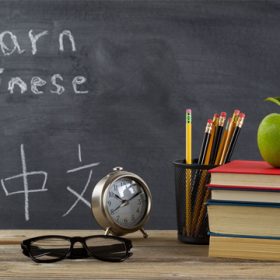 arn
inese
中文